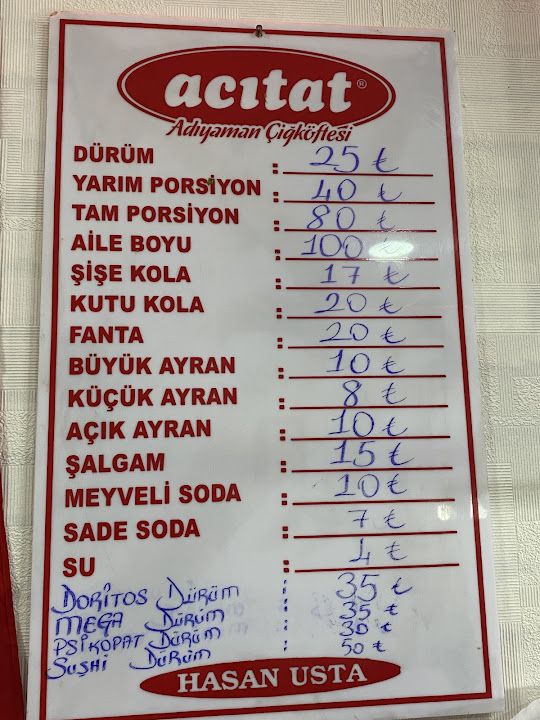 acıtat®
Adıyaman Çiğköftesi
DÜRÜM : 25 ₺
YARIM PORSİYON : 40 ₺
TAM PORSİYON : 80 ₺
AİLE BOYU : 100 ₺
ŞİŞE KOLA : 17 ₺
KUTU KOLA : 20 ₺
FANTA : 20 ₺
BÜYÜK AYRAN : 10 ₺
KÜÇÜK AYRAN : 8 ₺
AÇIK AYRAN : 10 ₺
ŞALGAM : 15 ₺
MEYVELİ SODA : 10 ₺
SADE SODA : 7 ₺
SU : 4 ₺
DORİTOS DÜRÜM : 35 ₺
MEGA DÜRÜM : 35 ₺
PSİKOPAT DÜRÜM : 30 ₺
SUSHİ DÜRÜM : 50 ₺
HASAN USTA